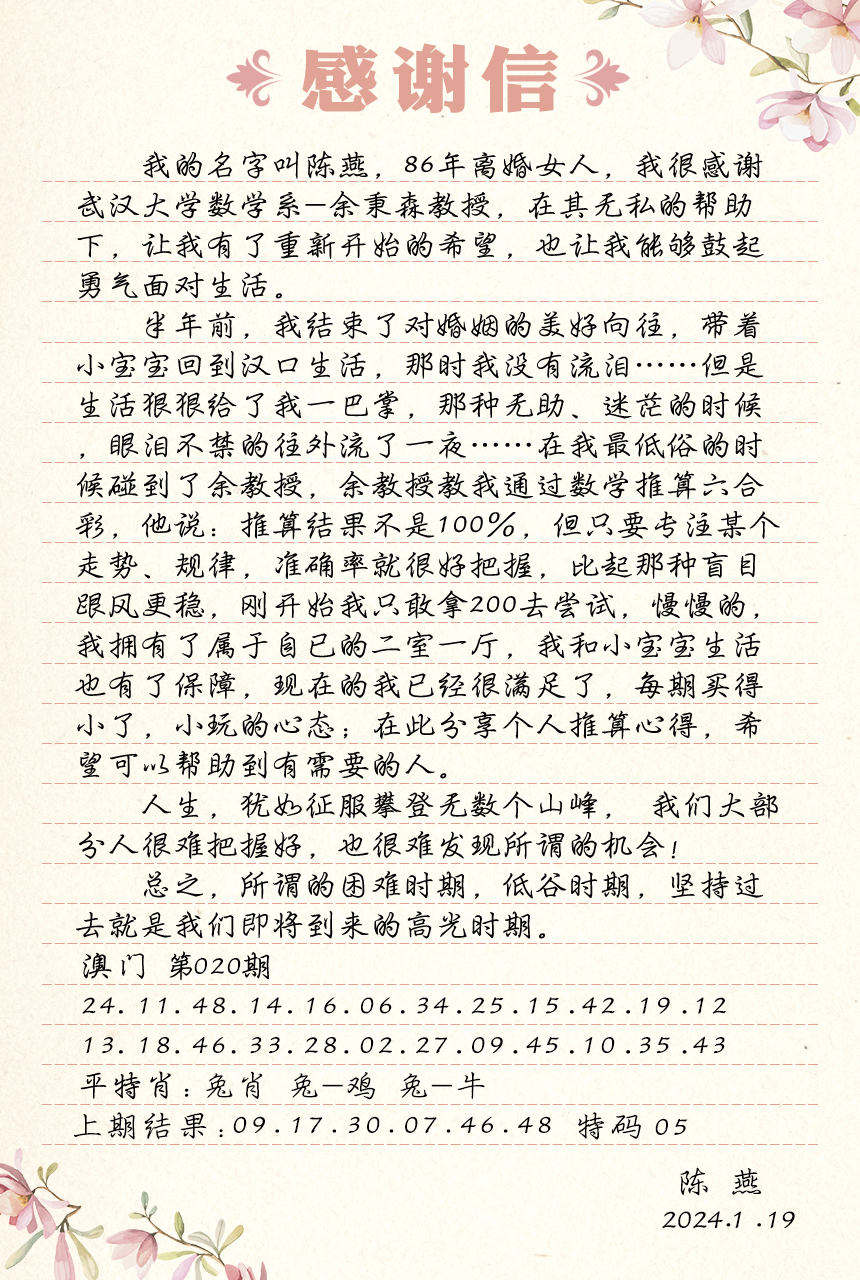 感谢信
我的名字叫陈燕，86年离婚女人，我很感谢
武汉大学数学系—余秉森教授，在其无私的帮助
下，让我有了重新开始的希望，也让我能够鼓起
勇气面对生活。
半年前，我结束了对婚姻的美好向往，带着
小宝宝回到汉口生活，那时我没有流泪……但是
生活狠狠给了我一巴掌，那种无助、迷茫的时候
，眼泪不禁的往外流了一夜……在我最低俗的时
候碰到了余教授，余教授教我通过数学推算六合
彩，他说：推算结果不是100%，但只要专注某个
走势、规律，准确率就很好把握，比起那种盲目
跟风更稳，刚开始我只敢拿200去尝试，慢慢的，
我拥有了属于自已的二室一厅，我和小宝宝生活
也有了保障，现在的我已经很满足了，每期买得
小了，小玩的心态；在此分享个人推算心得，希
望可以帮助到有需要的人。
人生，犹如征服攀登无数个山峰， 我们大部
分人很难把握好，也很难发现所谓的机会！
总之，所谓的困难时期，低谷时期，坚持过
去就是我们即将到来的高光时期。
澳门 第020期
24.11.48.14.16.06.34.25.15.42.19.12
13.18.46.33.28.02.27.09.45.10.35.43
平特肖：兔肖 兔—鸡 兔—牛
上期结果：09.17.30.07.46.48 特码 05
陈 燕
2024.1.19